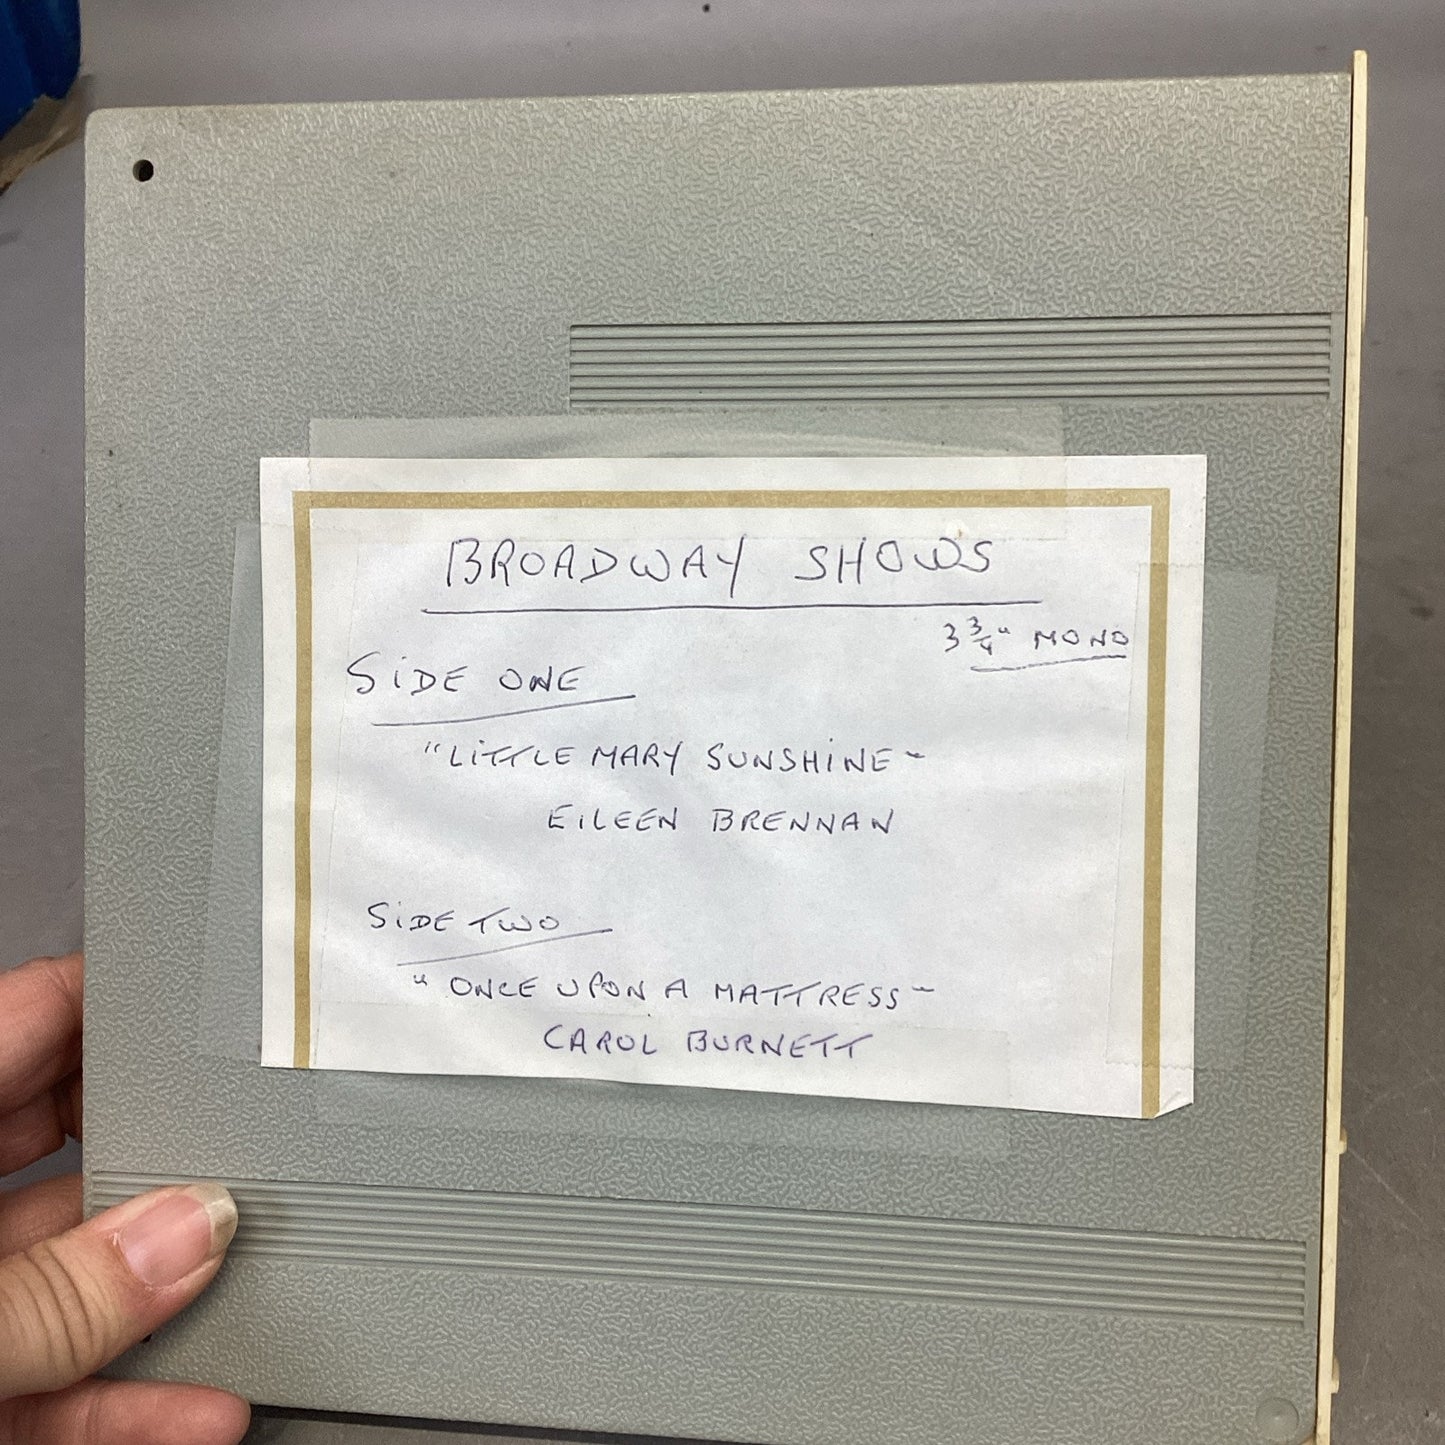 BROADWAY SHOWS
3 3/4" MONO
SiDE ONE
"LiTTLE MARY SUNSHiNE"
EiLEEN BRENNAN
SiDE TWO
"ONCE UPON A MATTRESS"
CAROL BURNETT